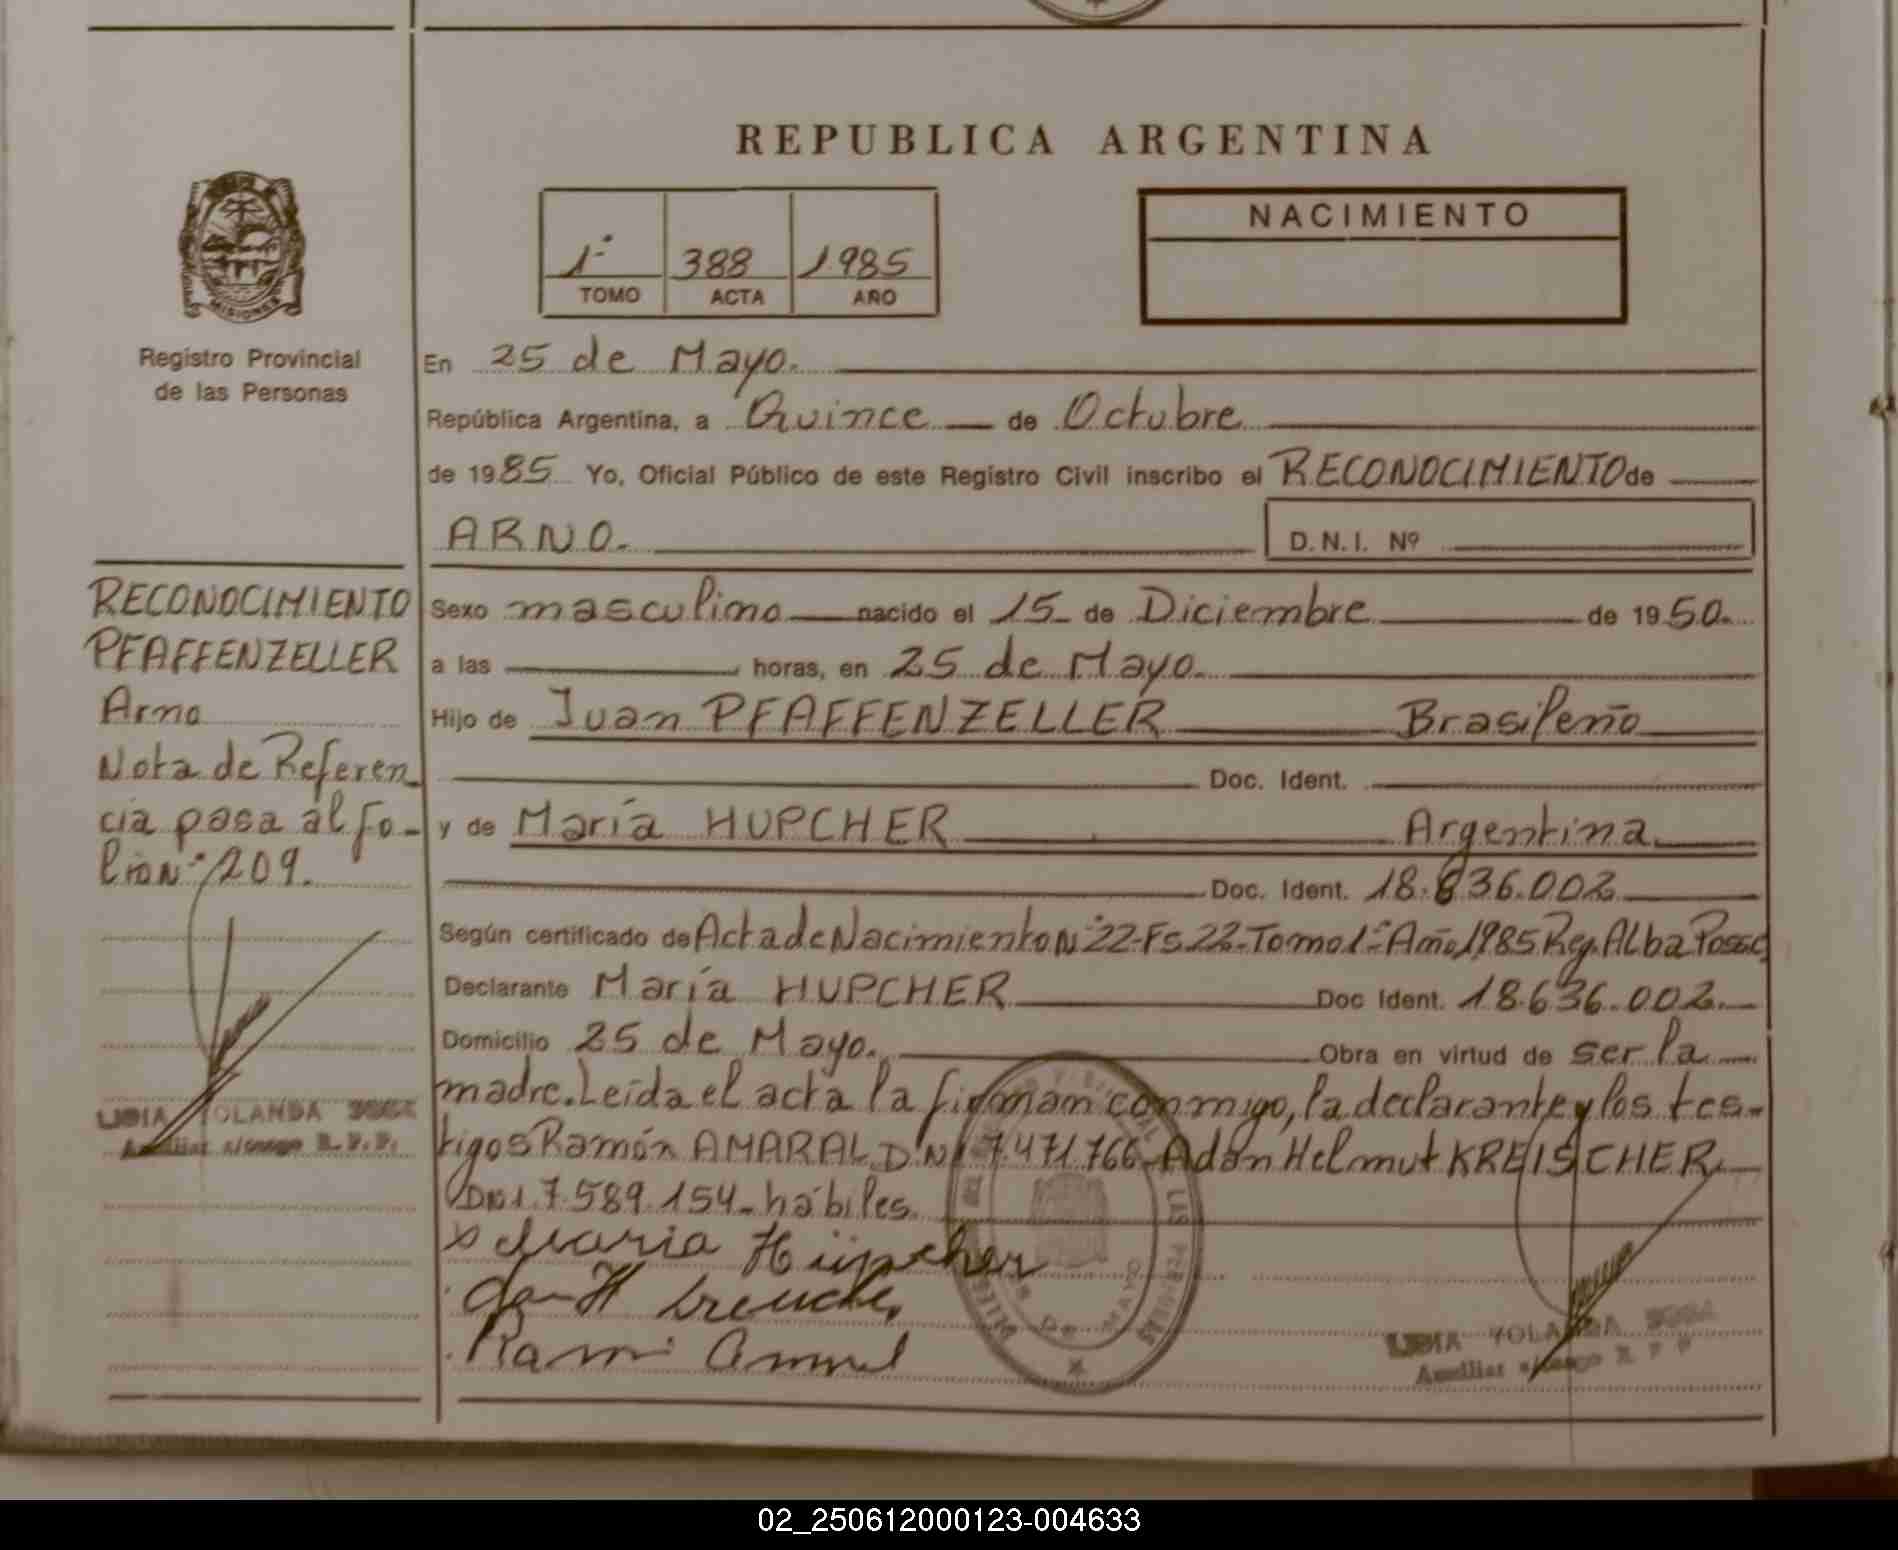 REPUBLICA ARGENTINA
1º 388 1985
TOMO ACTA AÑO
NACIMIENTO
MISIONES
Registro Provincial
de las Personas
En 25 de Mayo.
República Argentina, a Quince de Octubre
de 1985 Yo, Oficial Público de este Registro Civil inscribo el RECONOCIMIENTO de
ARNO.
D.N.I. Nº
RECONOCIMIENTO
PFAFFENZELLER
Arno
Nota de Referen
cia pasa al fo-
lio Nº 209.
LIDIA YOLANDA
Auxiliar a/cargo R. P. P.
Sexo masculino nacido el 15 de Diciembre de 1950.
a las horas, en 25 de Mayo.
Hijo de Juan PFAFFENZELLER Brasileño
Doc. Ident.
y de María HUPCHER Argentina
Doc. Ident. 18.636.002
Según certificado de Acta de Nacimiento Nº 22-Fs 22-Tomo 1º-Año 1985 Reg. Alba Posse
Declarante María HUPCHER Doc Ident. 18.636.002.
Domicilio 25 de Mayo. Obra en virtud de ser la
madre. Leída el acta la firman conmigo, la declarante y los tes-
tigos Ramón AMARAL DNI 7.471.766 Adán Helmut KREISCHER
DNI. 7.589.154- hábiles.
x Maria Hüpcher
Ramon Amaral
DE LAS PERSONAS
DE MAYO
LIDIA YOLANDA
Auxiliar a/cargo R P P
02_250612000123-004633